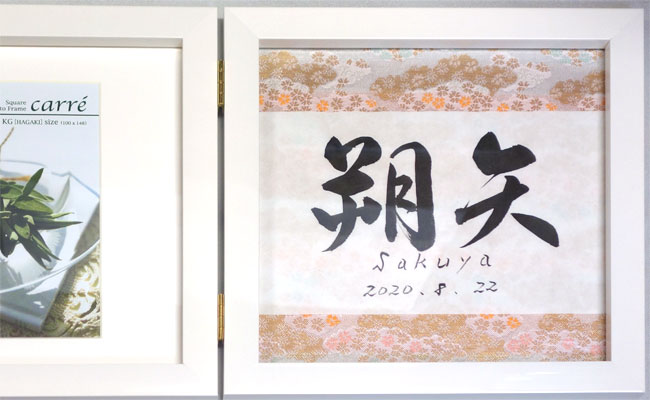 Square
to Frame carré
KG [HAGAKI] size (100 x 148)
朔矢
Sakuya
2020.8.22